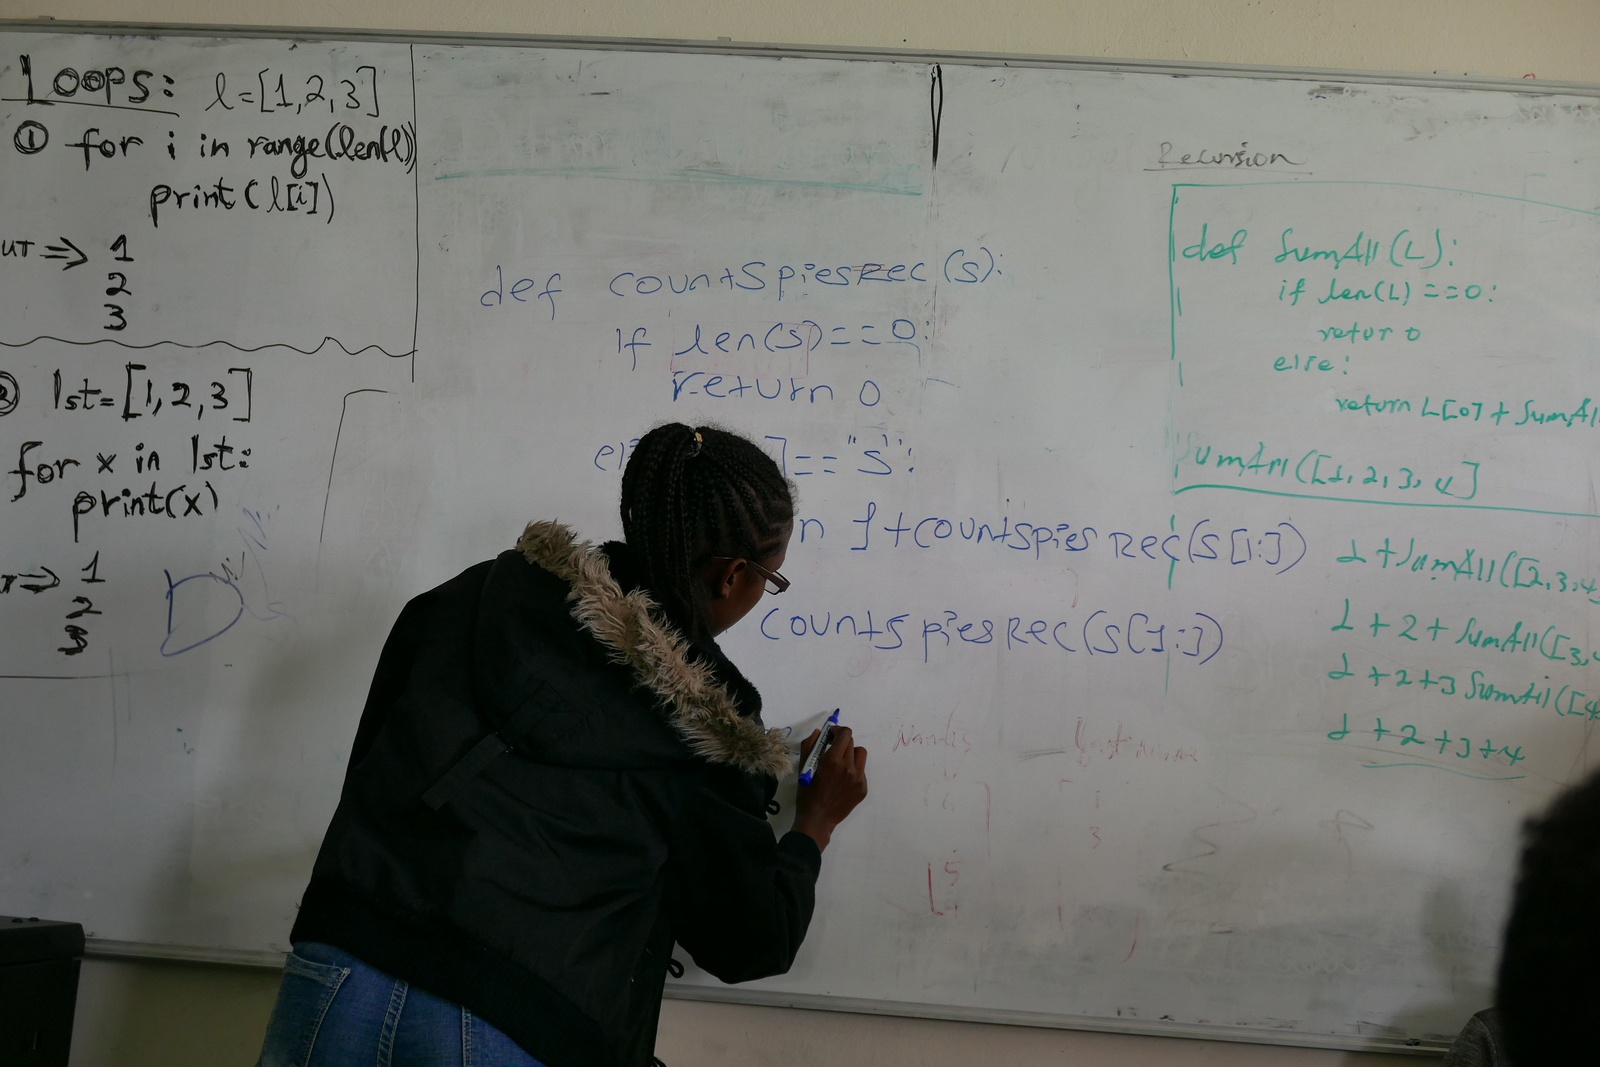 Loops: l=[1,2,3]
① for i in range(len(l))
print(l[i])
UT ⇒ 1
2
3
lst=[1,2,3]
for x in lst:
print(x)
⇒ 1
2
3
def countSpiesRec(s):
if len(s)==0:
return 0
]=="s":
n 1+countspiesRec(s[1:])
countspiesRec(s[1:])
Recursion
def SumAll(L):
if len(L)==0:
retur 0
else:
return L[0]+SumAl
SumAll([1,2,3,4]
1+SumAll([2,3,4
1+2+SumAll([3,
1+2+3 SumAll([4
1+2+3+4